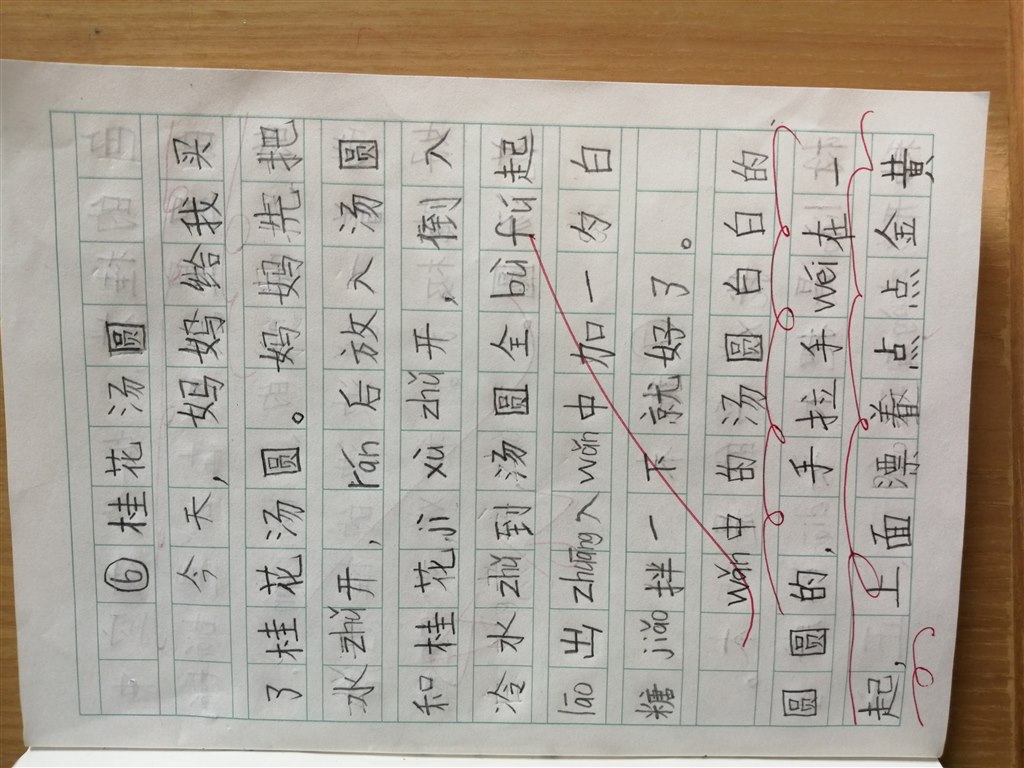 ⑥桂花汤圆
今天,妈妈给我买
了桂花汤圆。妈妈先把
水zhǔ开,rán后放入汤圆
和桂花jì xù zhǔ开,倒入
冷水zhǔ到汤圆全bù fú起
lāo出zhuāng入wǎn中加一勺白
糖jiǎo拌一下就好了。
wǎn中的汤圆白白的
圆圆的,手拉手wéi在一
起,上面漂着点点金黄